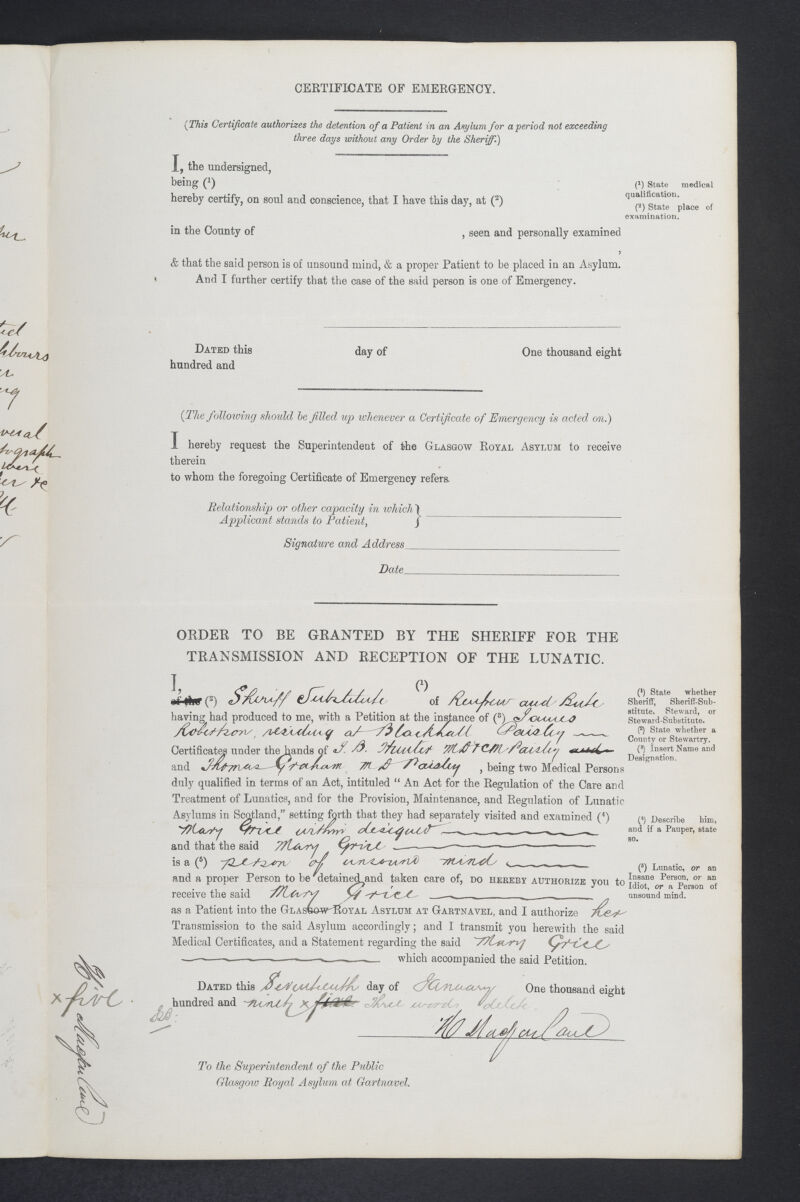 CERTIFICATE OF EMERGENCY.
(This Certificate authorizes the detention of a Patient in an Asylum for a period not exceeding
three days without any Order by the Sheriff.)
I, the undersigned,
being (¹)
hereby certify, on soul and conscience, that I have this day, at (²)
(¹) State medical
qualification.
(²) State place of
examination.
in the County of , seen and personally examined
,
& that the said person is of unsound mind, & a proper Patient to be placed in an Asylum.
And I further certify that the case of the said person is one of Emergency.
DATED this day of One thousand eight
hundred and
(The following should be filled up whenever a Certificate of Emergency is acted on.)
I hereby request the Superintendent of the GLASGOW ROYAL ASYLUM to receive
therein
to whom the foregoing Certificate of Emergency refers.
Relationship or other capacity in which }
Applicant stands to Patient, }
Signature and Address
Date
ORDER TO BE GRANTED BY THE SHERIFF FOR THE
TRANSMISSION AND RECEPTION OF THE LUNATIC.
I, (¹)
of the (²) Sheriff Substitute of Renfrew and Bute
having had produced to me, with a Petition at the instance of (³) James
Robertson, residing at Blackhall Paisley
Certificates under the hands of J. B. Hunter M.D & CM Paisley and
and Thomas Graham, M.D Paisley , being two Medical Persons
duly qualified in terms of an Act, intituled “ An Act for the Regulation of the Care and
Treatment of Lunatics, and for the Provision, Maintenance, and Regulation of Lunatic
Asylums in Scotland,” setting forth that they had separately visited and examined (⁴)
Mary Grice within designed
and that the said Mary Grice
is a (⁵) person of unsound mind
and a proper Person to be detained and taken care of, DO HEREBY AUTHORIZE you to
receive the said Mary Grice
as a Patient into the GLASGOW ROYAL ASYLUM AT GARTNAVEL, and I authorize her
Transmission to the said Asylum accordingly; and I transmit you herewith the said
Medical Certificates, and a Statement regarding the said Mary Grice
which accompanied the said Petition.
DATED this Seventeenth day of January One thousand eight
hundred and ninety x five three words delete
Macfarlane
(¹) State whether
Sheriff, Sheriff-Sub-
stitute, Steward, or
Steward-Substitute.
(²) State whether a
County or Stewartry.
(³) Insert Name and
Designation.
(⁴) Describe him,
and if a Pauper, state
so.
(⁵) Lunatic, or an
Insane Person, or an
Idiot, or a Person of
unsound mind.
x five
Macfarlane
To the Superintendent of the Public
Glasgow Royal Asylum at Gartnavel.